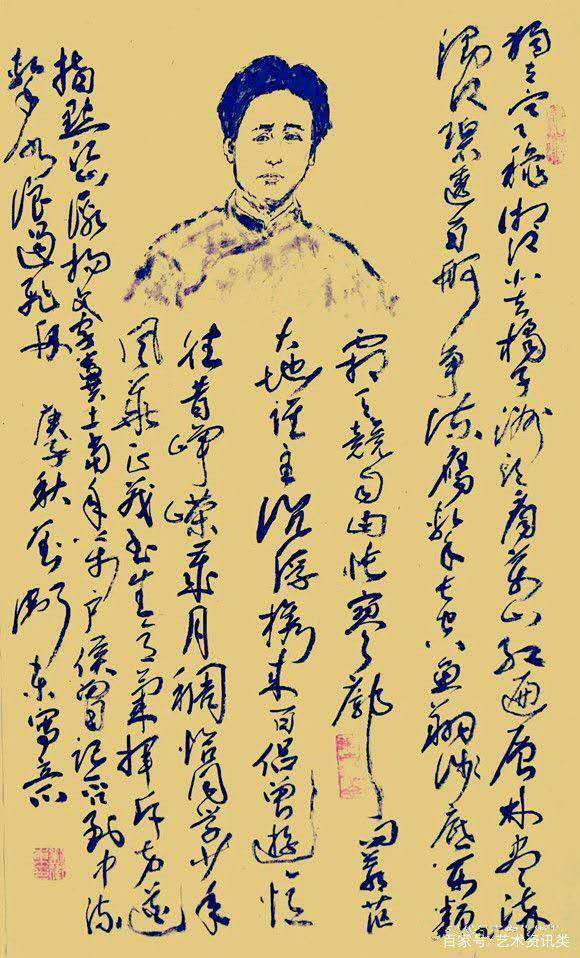 独立寒秋湘江北去橘子洲头看万山红遍层林尽染
漫江碧透百舸争流鹰击长空鱼翔浅底万类
霜天竞自由怅寥廓问苍茫
大地谁主沉浮携来百侣曾游忆
往昔峥嵘岁月稠恰同学少年
风华正茂书生意气挥斥方遒
指点江山激扬文字粪土当年万户侯曾记否到中流
击水浪遏飞舟
庚子秋 东写意
百家号/艺术资讯类